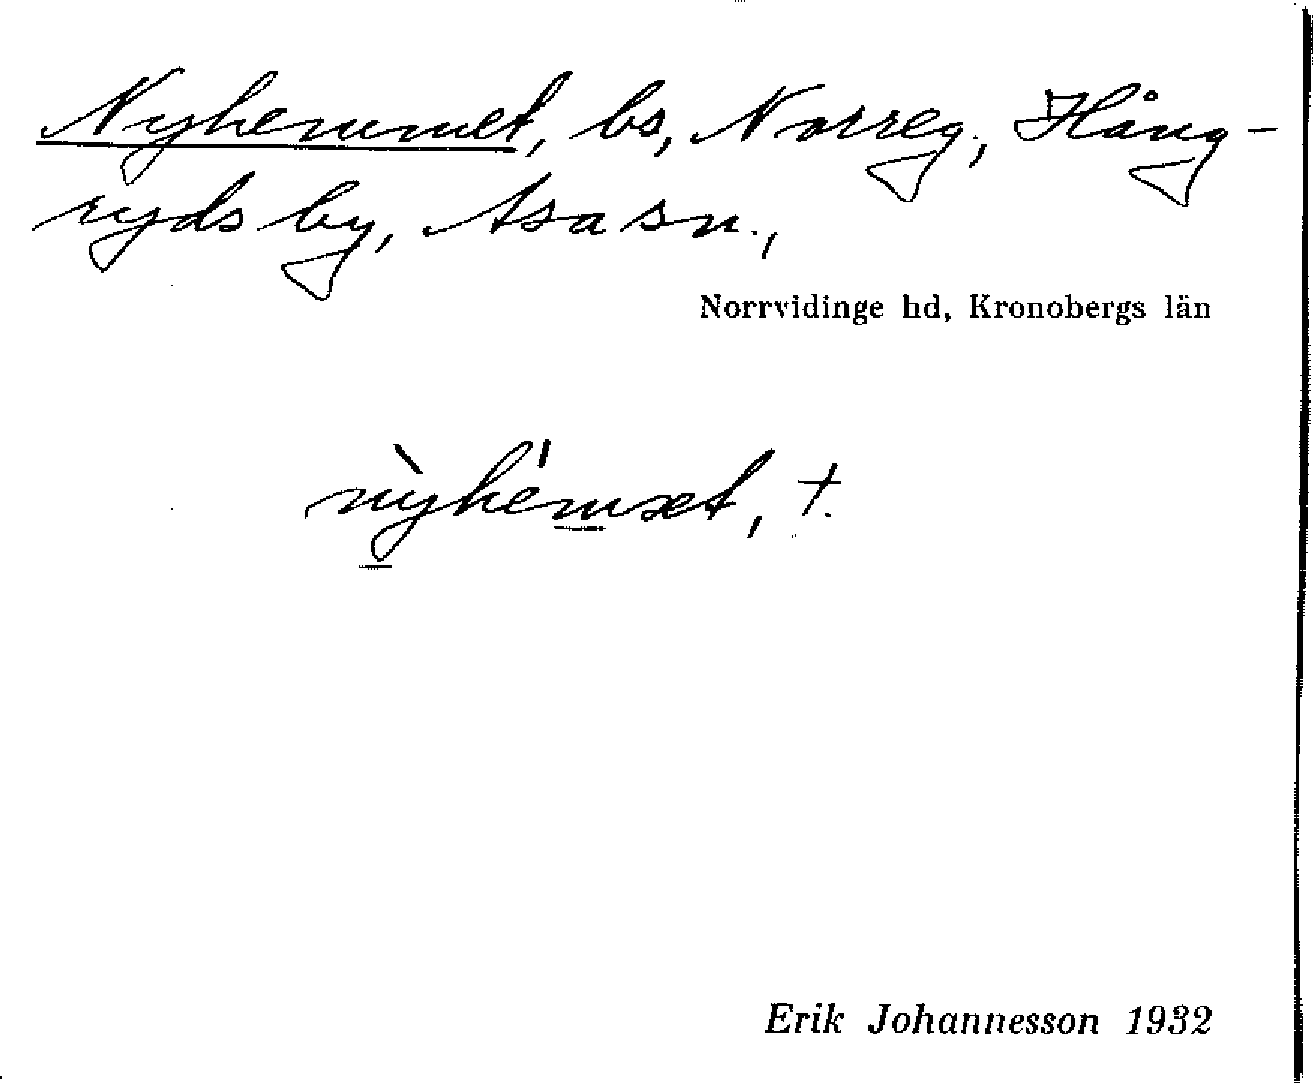 Nyhemmet, bs, Norreg., Hång-
ryds by, Asa sn.,
Norrvidinge hd, Kronobergs län
nỳhémæt, †.
Erik Johannesson 1932